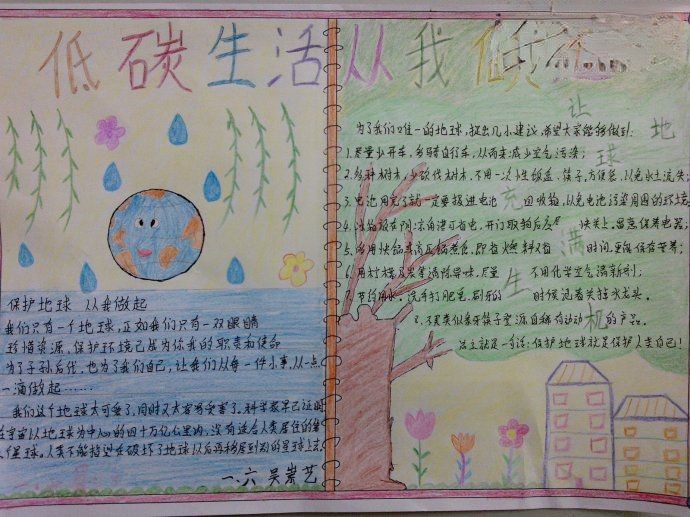 低碳生活从我做
保护地球 从我做起
我们只有一个地球,正如我们只有一双眼睛
珍惜资源,保护环境已成为你我的职责和使命
为了子孙后代,也为了我们自己,让我们从每一件小事,从一点
一滴做起……
我们这个地球太可爱了,同时又太容易受害了,科学家早已证明
在宇宙以地球为中心的四十万亿公里内,没有适合人类居住的第
二个星球。人类不能指望在破坏了地球以后再移居到别的星球上去。
一、六 吴崇艺
让地球充满生机
为了我们唯一的地球,提出几小建议,希望大家能够做到:
1.尽量少开车,多骑自行车,从而减少空气污染;
2.多种树木,少砍伐树木,不用一次性饭盒、筷子,方便袋,以免水土流失;
3.电池用完了就一定要投进电池回收箱,以免电池污染周围的环境
4.冰箱放在阴凉角落可省电,开门取物后尽快关上。显意保养电器;
5.多用快锅或高压锅煮食,即省燃料又省时间,更能保存营养;
6.用柠檬及炭等消除异味,尽量不用化学空气清新剂;
7.节约用水。洗手打肥皂、刷牙的时候记着关掉水龙头。
8.不买类似象牙筷子宣源自稀有动动机的产品。
总主就是一句话:保护地球就是保护人类自己!